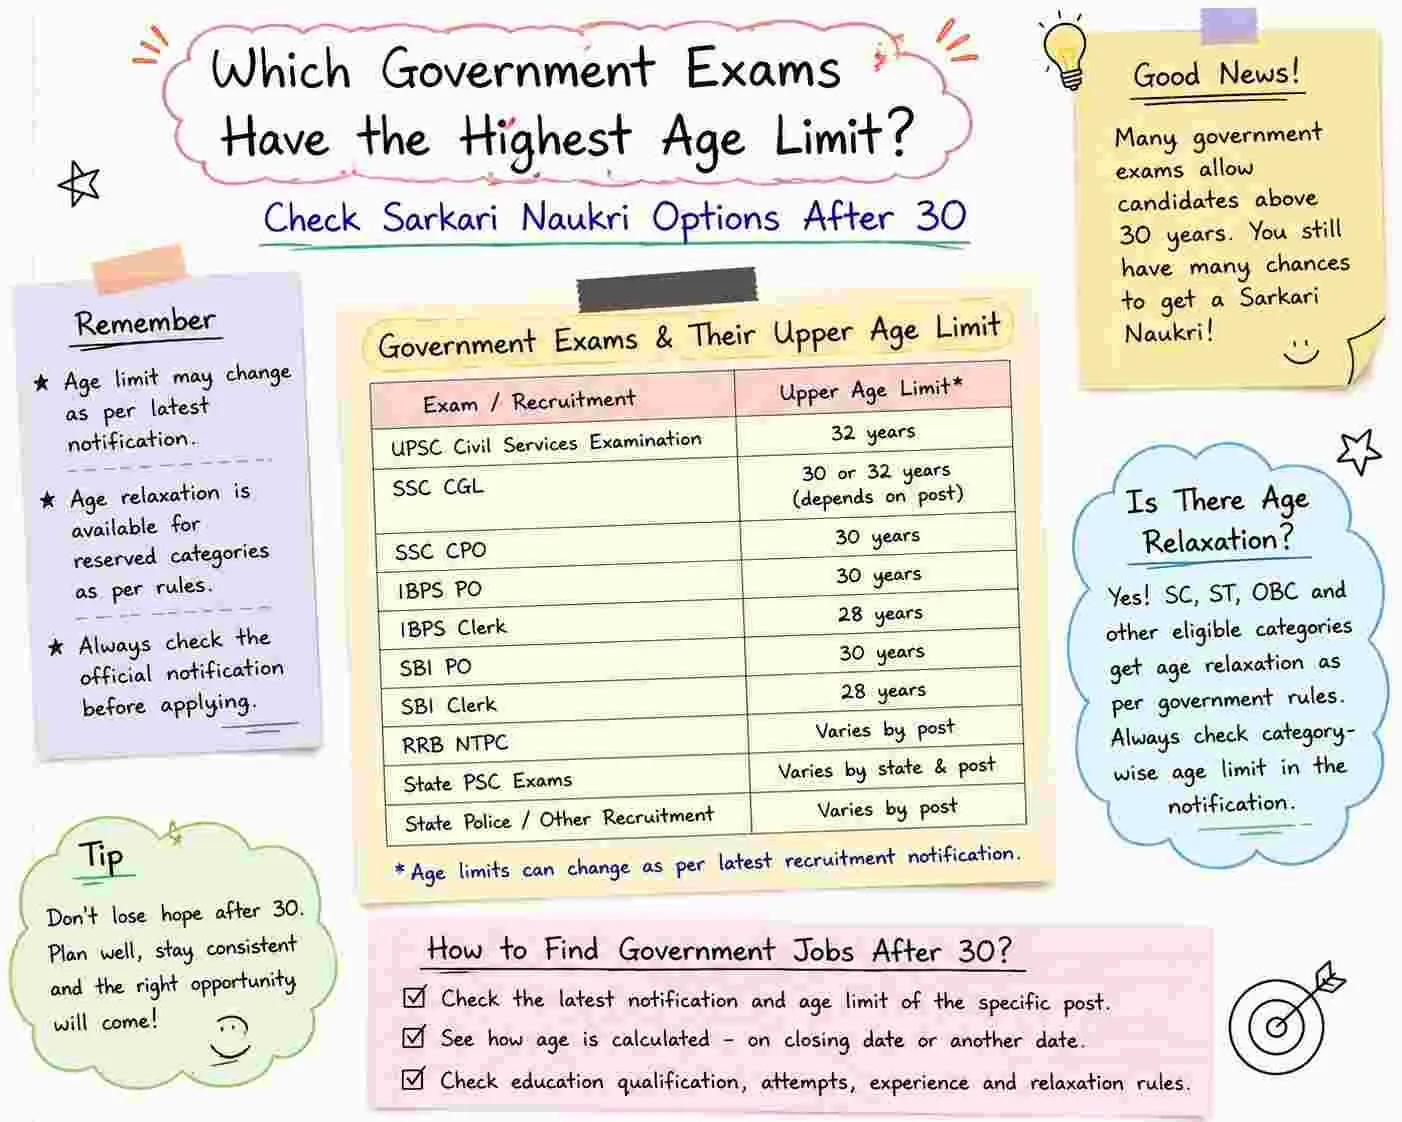 Which Government Exams
Have the Highest Age Limit?
Check Sarkari Naukri Options After 30
Good News!
Many government
exams allow
candidates above
30 years. You still
have many chances
to get a Sarkari
Naukri!
Remember
★ Age limit may change
as per latest
notification.
★ Age relaxation is
available for
reserved categories
as per rules.
★ Always check the
official notification
before applying.
Government Exams & Their Upper Age Limit
Exam / Recruitment Upper Age Limit*
UPSC Civil Services Examination 32 years
SSC CGL 30 or 32 years
(depends on post)
SSC CPO 30 years
IBPS PO 30 years
IBPS Clerk 28 years
SBI PO 30 years
SBI Clerk 28 years
RRB NTPC Varies by post
State PSC Exams Varies by state & post
State Police / Other Recruitment Varies by post
*Age limits can change as per latest recruitment notification.
Is There Age
Relaxation?
Yes! SC, ST, OBC and
other eligible categories
get age relaxation as
per government rules.
Always check category-
wise age limit in the
notification.
Tip
Don't lose hope after 30.
Plan well, stay consistent
and the right opportunity
will come!
How to Find Government Jobs After 30?
☑ Check the latest notification and age limit of the specific post.
☑ See how age is calculated – on closing date or another date.
☑ Check education qualification, attempts, experience and relaxation rules.